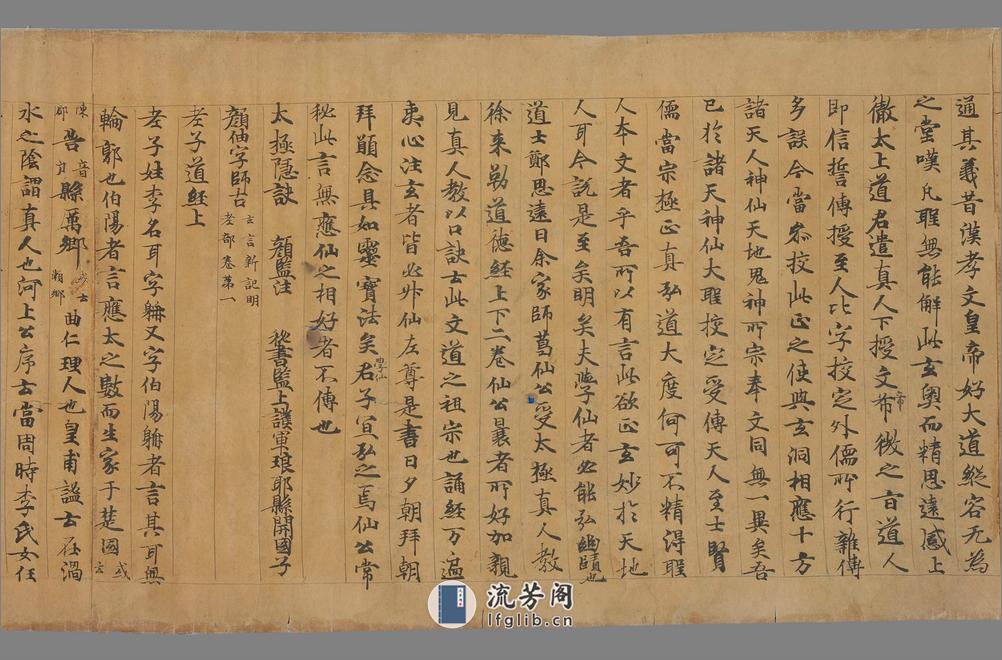 通其義昔漢孝文皇帝好大道縱容无為
之堂嘆凡聖無能解此玄奧而精思遠感上
徹太上道君遣真人下授文帝希微之旨道人
即信誓傳授至人比字挍定外儒所行雜傳
多誤今當參挍此正之使與玄洞相應十方
諸天人神仙天地鬼神所宗奉文同無一異矣吾
已於諸天神仙大聖挍定受傳天人至士賢
儒當宗極正真弘道大度何可不精得聖
人本文者乎吾所以有言此欲正玄妙於天地
人耳今說是至矣明矣夫學仙者必能弘幽賾也
道士鄭思遠曰余家師葛仙公受太極真人教
徐來勒道德經上下二卷仙公曩者所好加親
見真人教以口訣士此文道之祖宗也誦經万遍
夷心注玄者皆必升仙左尊是書日夕朝拜朝
拜願念具如靈寶法矣學仙君子宜弘之焉仙公常
秘此言無應仙之相好者不傳也
太極隱訣 顏監注 秘書監上護軍琅耶縣開國子
顏籀字師古 玄言新記明老部卷第一
老子道經上
老子姓李名耳字聃又字伯陽聃者言其耳無
輪郭也伯陽者言應太之數而生家于楚國 或云
陳郡 苦 音 縣萬鄉 賴鄉 曲仁理人也皇甫謐云在渦
水之陰謂真人也河上公序云當周時李氏女任
流芳阁
lfglib.cn